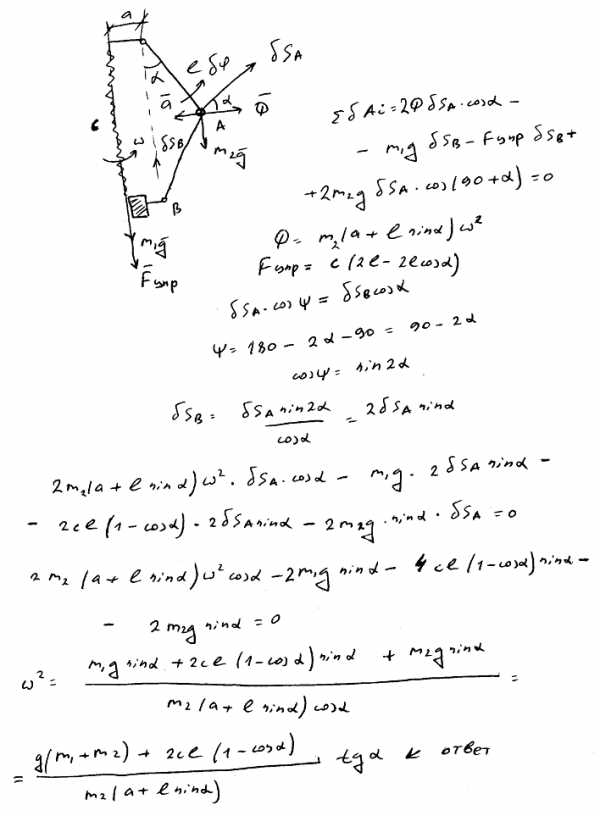 a
α
l δφ
δS_A
ā
α
Φ̄
A
c
ω
δS_B
m₂ḡ
B
m₁ḡ
F̄упр
ΣδAi = 2Φ δS_A · cosα −
− m₁g δS_B − Fупр δS_B +
+ 2m₂g δS_A · cos(90+α) = 0
Φ = m₂(a + l sinα) ω²
Fупр = c (2l − 2l cosα)
δS_A · cosψ = δS_B cosα
ψ = 180 − 2α − 90 = 90 − 2α
cosψ = sin2α
δS_B = δS_A sin2α / cosα = 2δS_A sinα
2m₂(a + l sinα) ω² · δS_A · cosα − m₁g · 2δS_A sinα −
− 2cl (1 − cosα) · 2δS_A sinα − 2m₂g · sinα · δS_A = 0
2m₂ (a + l sinα) ω² cosα − 2m₁g sinα − 4cl (1 − cosα) sinα −
− 2m₂g sinα = 0
ω² = m₁g sinα + 2cl (1 − cosα) sinα + m₂g sinα / m₂(a + l sinα) cosα =
= g(m₁ + m₂) + 2cl (1 − cosα) / m₂(a + l sinα) · tgα ← ответ